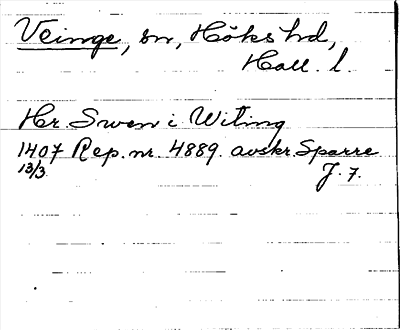 Veinge, sn, Höks hd,
Hall. l.
Hr. Swen i Witing
1407 Rep. nr. 4889. avskr. Sparre
13/3 J. 7.